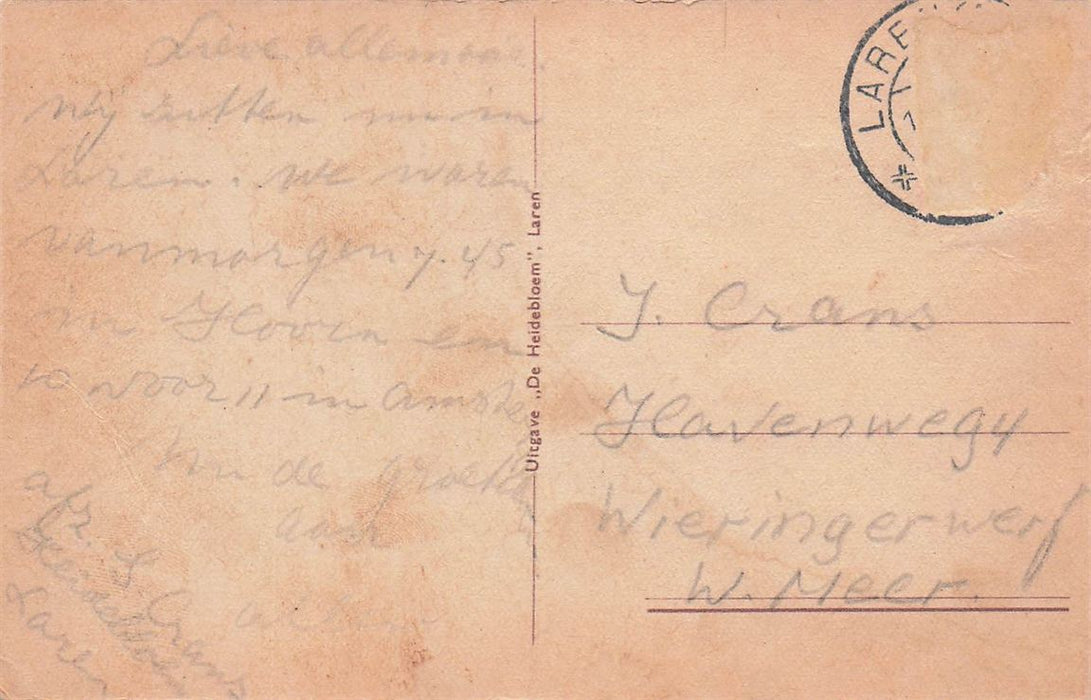 Lieve allemaal
Wij zitten nu in
Laren. We waren
vanmorgen 7.45
in Hoorn en
10 voor 11 in Amste
Nu de groeten
aan
afz. Crans
Heidebloem
Laren
Uitgave „De Heidebloem”, Laren
LARE
J. Crans
Havenweg 4
Wieringerwerf
W. Meer.